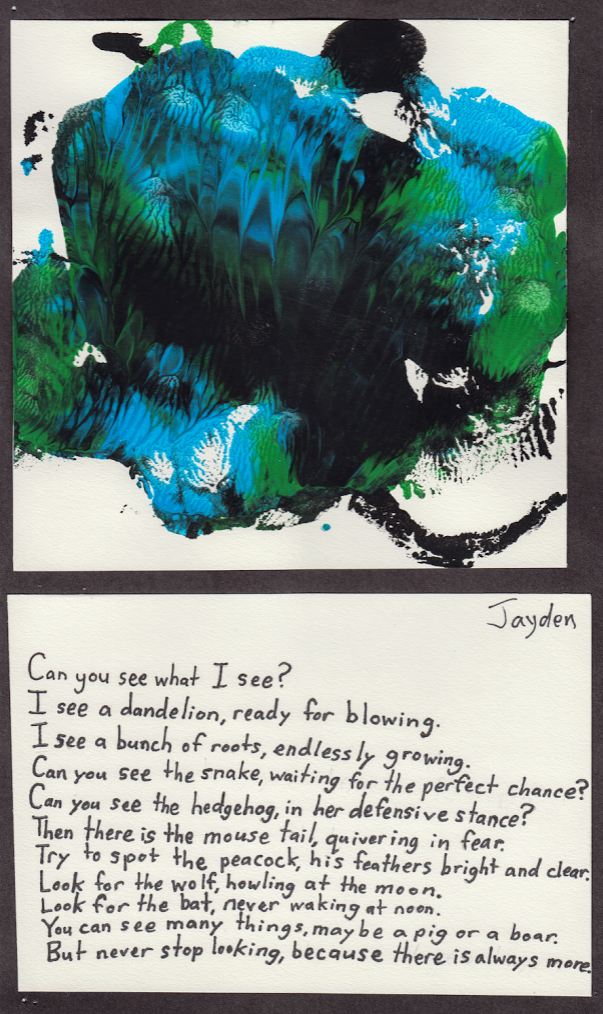 Jayden
Can you see what I see?
I see a dandelion, ready for blowing.
I see a bunch of roots, endlessly growing.
Can you see the snake, waiting for the perfect chance?
Can you see the hedgehog, in her defensive stance?
Then there is the mouse tail, quivering in fear.
Try to spot the peacock, his feathers bright and clear.
Look for the wolf, howling at the moon.
Look for the bat, never waking at noon.
You can see many things, maybe a pig or a boar.
But never stop looking, because there is always more.